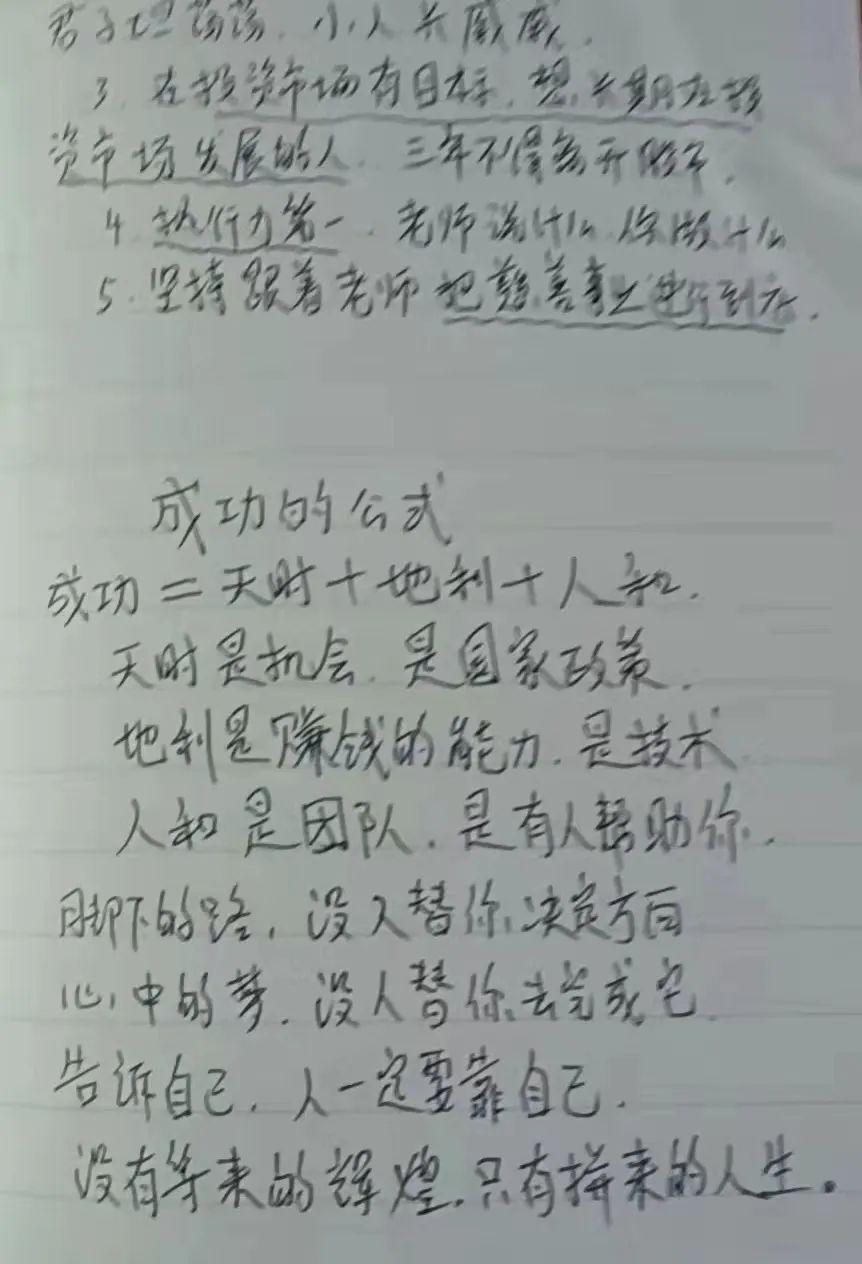 君子坦荡荡，小人长戚戚．
3．在投资市场有目标，想长期在投
资市场发展的人．三年不得离开股市．
4．执行力第一．老师说什么．你做什么
5．坚持跟着老师把慈善事业进行到底．
成功的公式
成功＝天时＋地利＋人和．
天时是机会．是国家政策．
地利是赚钱的能力．是技术
人和是团队．是有人帮助你．
脚下的路，没人替你决定方向
心中的梦．没人替你去完成它．
告诉自己．人一定要靠自己．
没有等来的辉煌．只有拼来的人生。